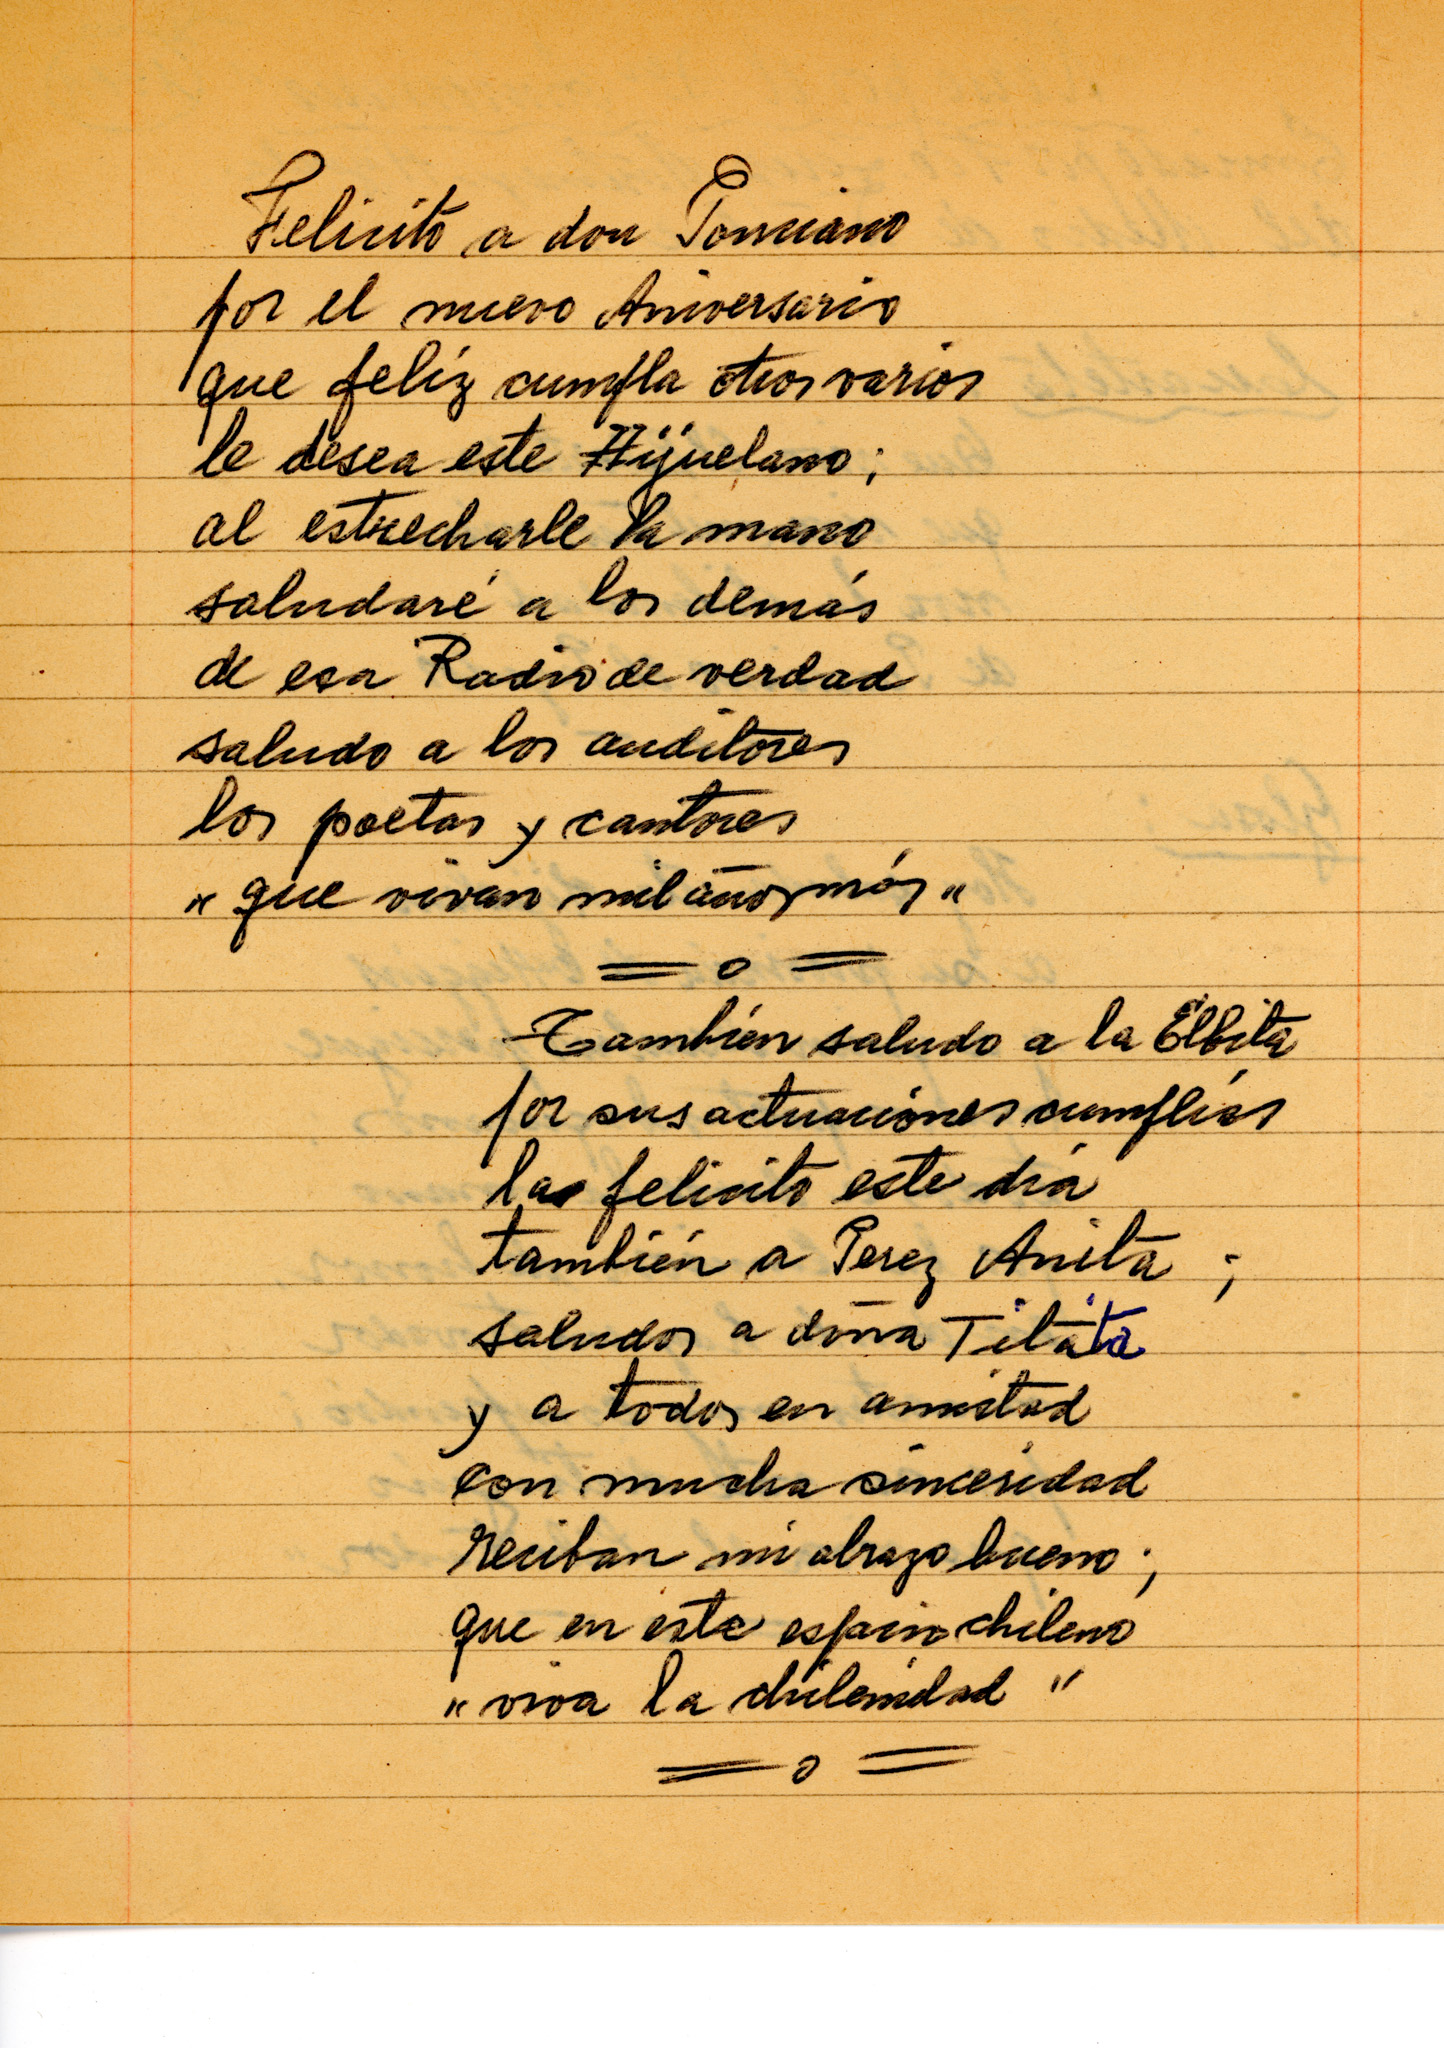 Felicito a don Ponciano
por el nuevo Aniversario
que felíz cumpla otros varios
le desea este Hijuelano;
al estrecharle la mano
saludaré a los demás
de esa Radio de verdad
saludo a los auditores
los poetas y cantores
"que vivan mil años más"
= o =
También saludo a la Elbita
por sus actuaciónes cumplías
las felicito este día
también a Perez Anita ;
saludos a doña Titata
y a todos en amistad
con mucha sinceridad
reciban mi abrazo bueno;
que en este espino chileno
"viva la chilenidad"
= o =